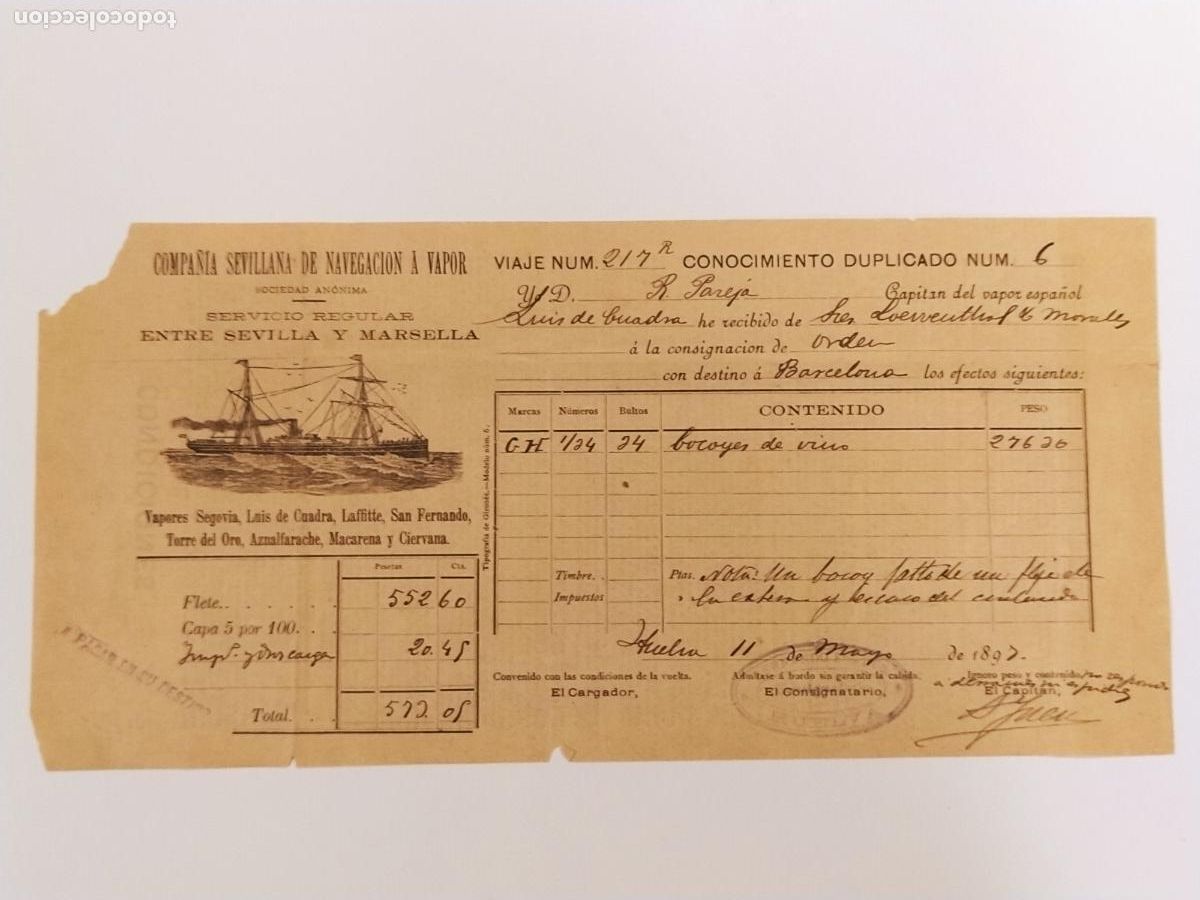 todocoleccion
COMPAÑIA SEVILLANA DE NAVEGACION Á VAPOR
SOCIEDAD ANÓNIMA
SERVICIO REGULAR
ENTRE SEVILLA Y MARSELLA
Vapores Segovia, Luis de Cuadra, Laffitte, San Fernando,
Torre del Oro, Aznalfarache, Macarena y Ciervana.
Pesetas Cts.
Flete. 552 60
Capa 5 por 100.
20. 45
Total. 573. 05
A PAGAR EN SU DESTINO
Tipografía de Gironés.—Modelo núm. 6.
VIAJE NUM. 217 R CONOCIMIENTO DUPLICADO NUM. 6
Yo D. R. Pareja Capitan del vapor español
Luis de Cuadra he recibido de Sres Loewenthal & Morales
á la consignacion de orden
con destino á Barcelona los efectos siguientes:
Marcas Números Bultos CONTENIDO PESO
GH 1/24 24 bocoyes de vino 27620
Timbre. . Ptas. Nota: Un bocoy falto de un fleje de
Impuestos » la cabeza y escaso del contenido
Huelva 11 de Mayo de 1897.
Convenido con las condiciones de la vuelta. Admítase á bordo sin garantir la cabida. Ignoro peso y contenido, no respondo
El Cargador, El Consignatario, El Capitan,